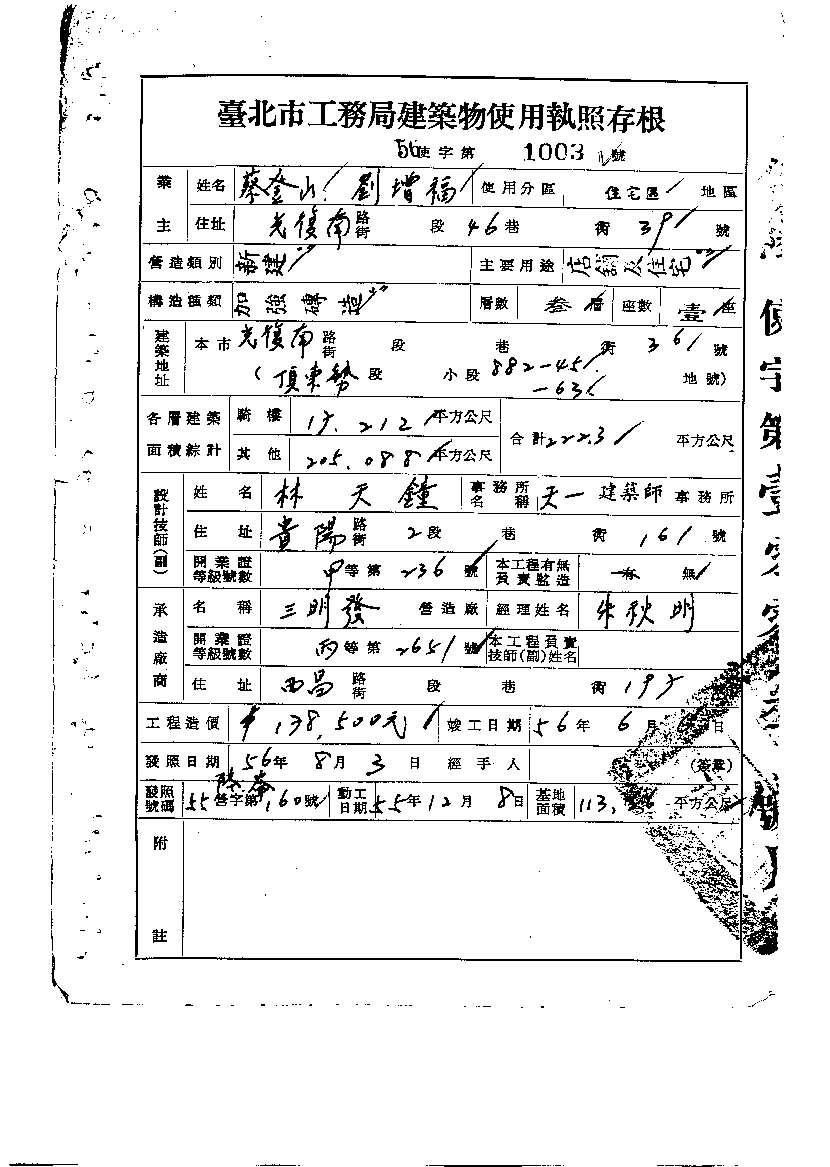 臺北市工務局建築物使用執照存根
56使字第 1003 號
業主 姓名 蔡登山 劉增福 使用分區 住宅區 地區
住址 光復南路街 段 46巷 衖 39 號
營造類別 新建 主要用途 店鋪及住宅
構造種類 加強磚造 層數 叁層 座數 壹座
建築地址 本市光復南路街 段 巷 衖 361 號
(頂東勢段 小段 882-45 地號)
-63
各層建築面積綜計 騎樓 17.212 平方公尺 合計222.3 平方公尺
其他 205.088 平方公尺
設計技師(副) 姓名 林天鐘 事務所名稱 天一建築師事務所
住址 貴陽路街 2段 巷 衖 161 號
開業證等級號數 甲等第 236 號 本工程有無負責監造 有 無
承造廠商 名稱 三明發 營造廠 經理姓名 朱秋明
開業證等級號數 丙等第 2651 號 本工程負責技師(副)姓名
住址 西昌路街 段 巷 衖 197 號
工程造價 138,500元 竣工日期 56年 6月 日
發照日期 56年 8月 3日 經手人 (簽章)
發照號碼 55營字第 160號 動工日期 55年12月 8日 基地面積 113. 平方公尺
附註
使字第壹